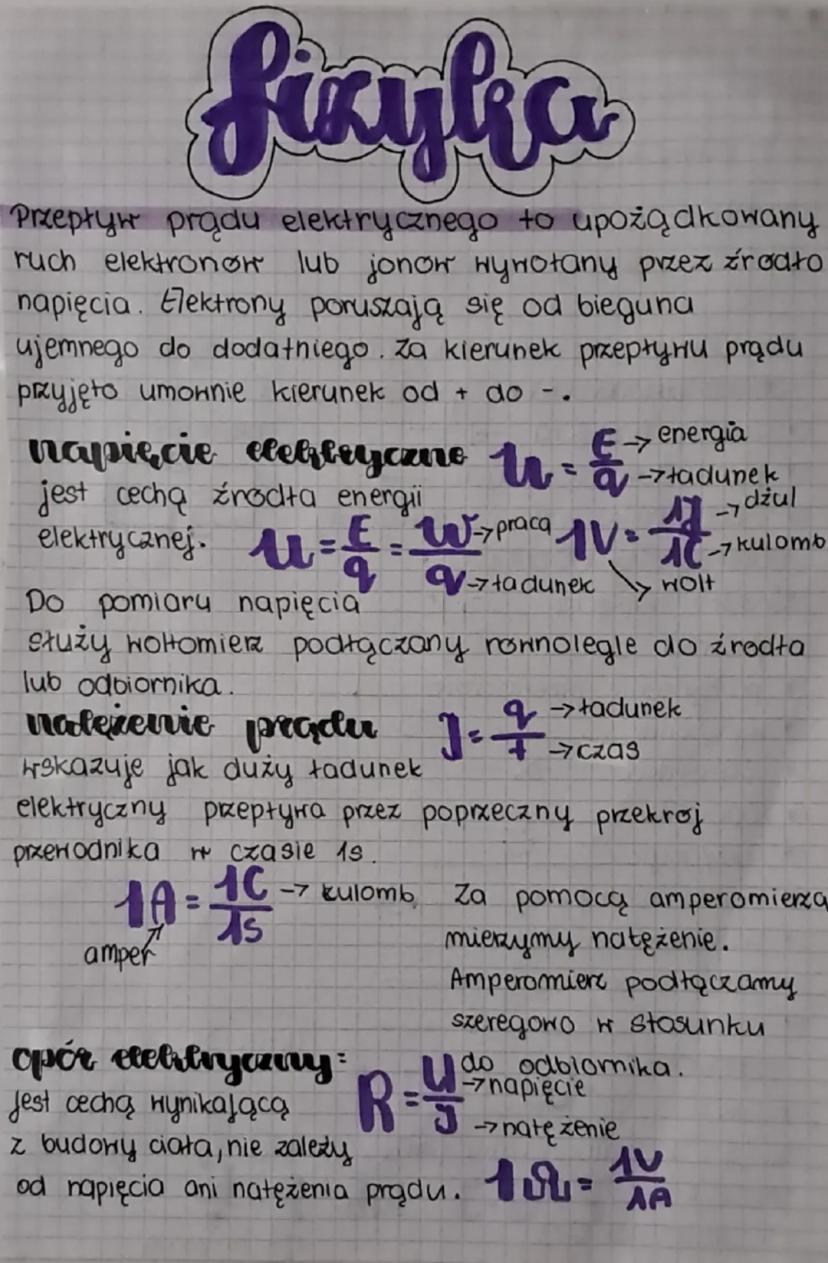 fizyka
Przepływ prądu elektrycznego to upożądkowany
ruch elektronów lub jonów wywołany przez źródło
napięcia. Elektrony poruszają się od bieguna
ujemnego do dodatniego. Za kierunek przepływu prądu
przyjęto umownie kierunek od + do -.
napięcie elektryczne U = E/q → energia → ładunek
jest cechą źródła energii
elektrycznej. U = E/q = W/q → praca → ładunek 1V = 1J/1C → dżul → kulomb → wolt
Do pomiaru napięcia
służy woltomierz podłączany równolegle do źródła
lub odbiornika.
natężenie prądu J = q/t → ładunek → czas
wskazuje jak duży ładunek
elektryczny przepływa przez poprzeczny przekrój
przewodnika w czasie 1s.
1A = 1C/1s → kulomb
amper
Za pomocą amperomierza
mierzymy natężenie.
Amperomierz podłączamy
szeregowo w stosunku
do odbiornika.
opór elektryczny: R = U/J → napięcie → natężenie
Jest cechą wynikającą
z budowy ciała, nie zależy
od napięcia ani natężenia prądu. 1Ω = 1V/1A